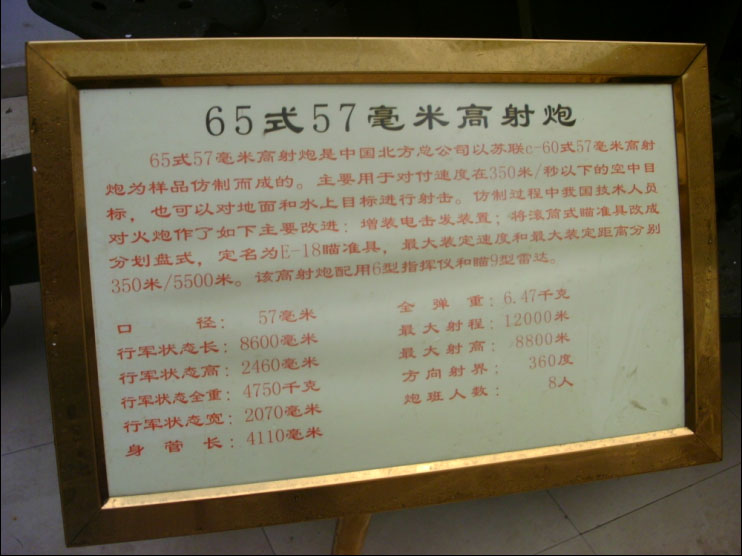 65式57毫米高射炮
65式57毫米高射炮是中国北方总公司以苏联c-60式57毫米高射
炮为样品仿制而成的。主要用于对付速度在350米/秒以下的空中目
标，也可以对地面和水上目标进行射击。仿制过程中我国技术人员
对火炮作了如下主要改进：增装电击发装置；将滚筒式瞄准具改成
分划盘式，定名为E-18瞄准具，最大装定速度和最大装定距离分别
350米/5500米。该高射炮配用6型指挥仪和瞄9型雷达。
口径：57毫米
行军状态长：8600毫米
行军状态高：2460毫米
行军状态全重：4750千克
行军状态宽：2070毫米
身管长：4110毫米
全弹重：6.47千克
最大射程：12000米
最大射高：8800米
方向射界：360度
炮班人数：8人